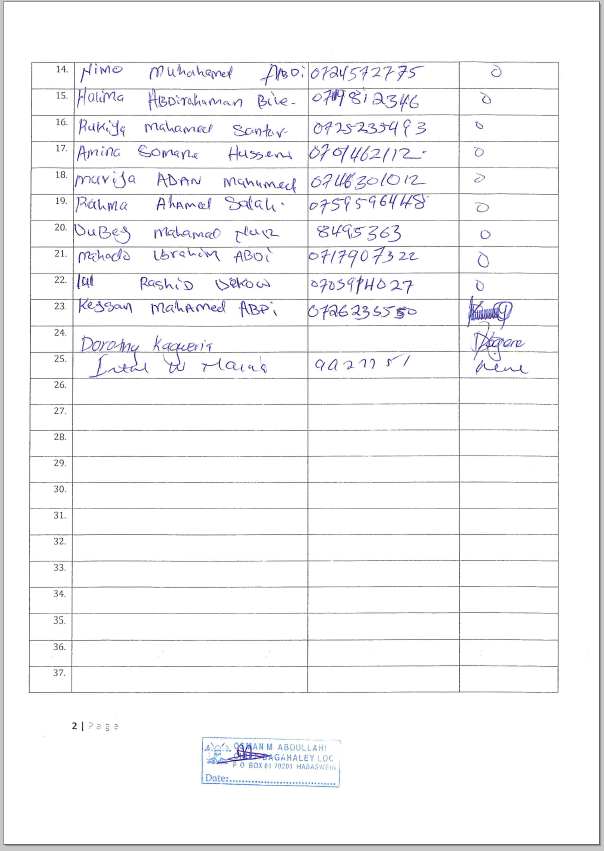 14. Nimo Muhahamed ABDi 0724572775 0
15. Halima ABDirahaman Bile- 0 812346 0
16. Rukiya Mahamed Santur- 0725235493 0
17. Amina Somane Husseni 0701462112. 0
18. ADAN Mahamed 0746301012 0
19. Rahma Ahamed Salah. 0759596448 0
20. DuBey Mahamad Nur 8495363 0
21. Mahado Ibrahim ABDi 0717907322 0
22. Rashid 0705914027 0
23. Keysan MAHAmed ABDi 0726235550
24. Dorothy
25. W
26.
27.
28.
29.
30.
31.
32.
33.
34.
35.
36.
37.
2 | Page
OSMAN M ABDULLAHI
DAGAHALEY LOC
P O BOX 61 70201 HABASWEIN
Date: